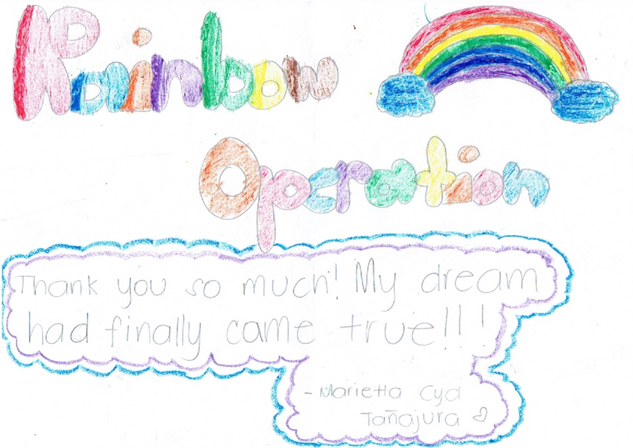 Rainbow
Operation
Thank you so much! My dream
had finally came true!!!
- Marietta Cyd
Tañajura